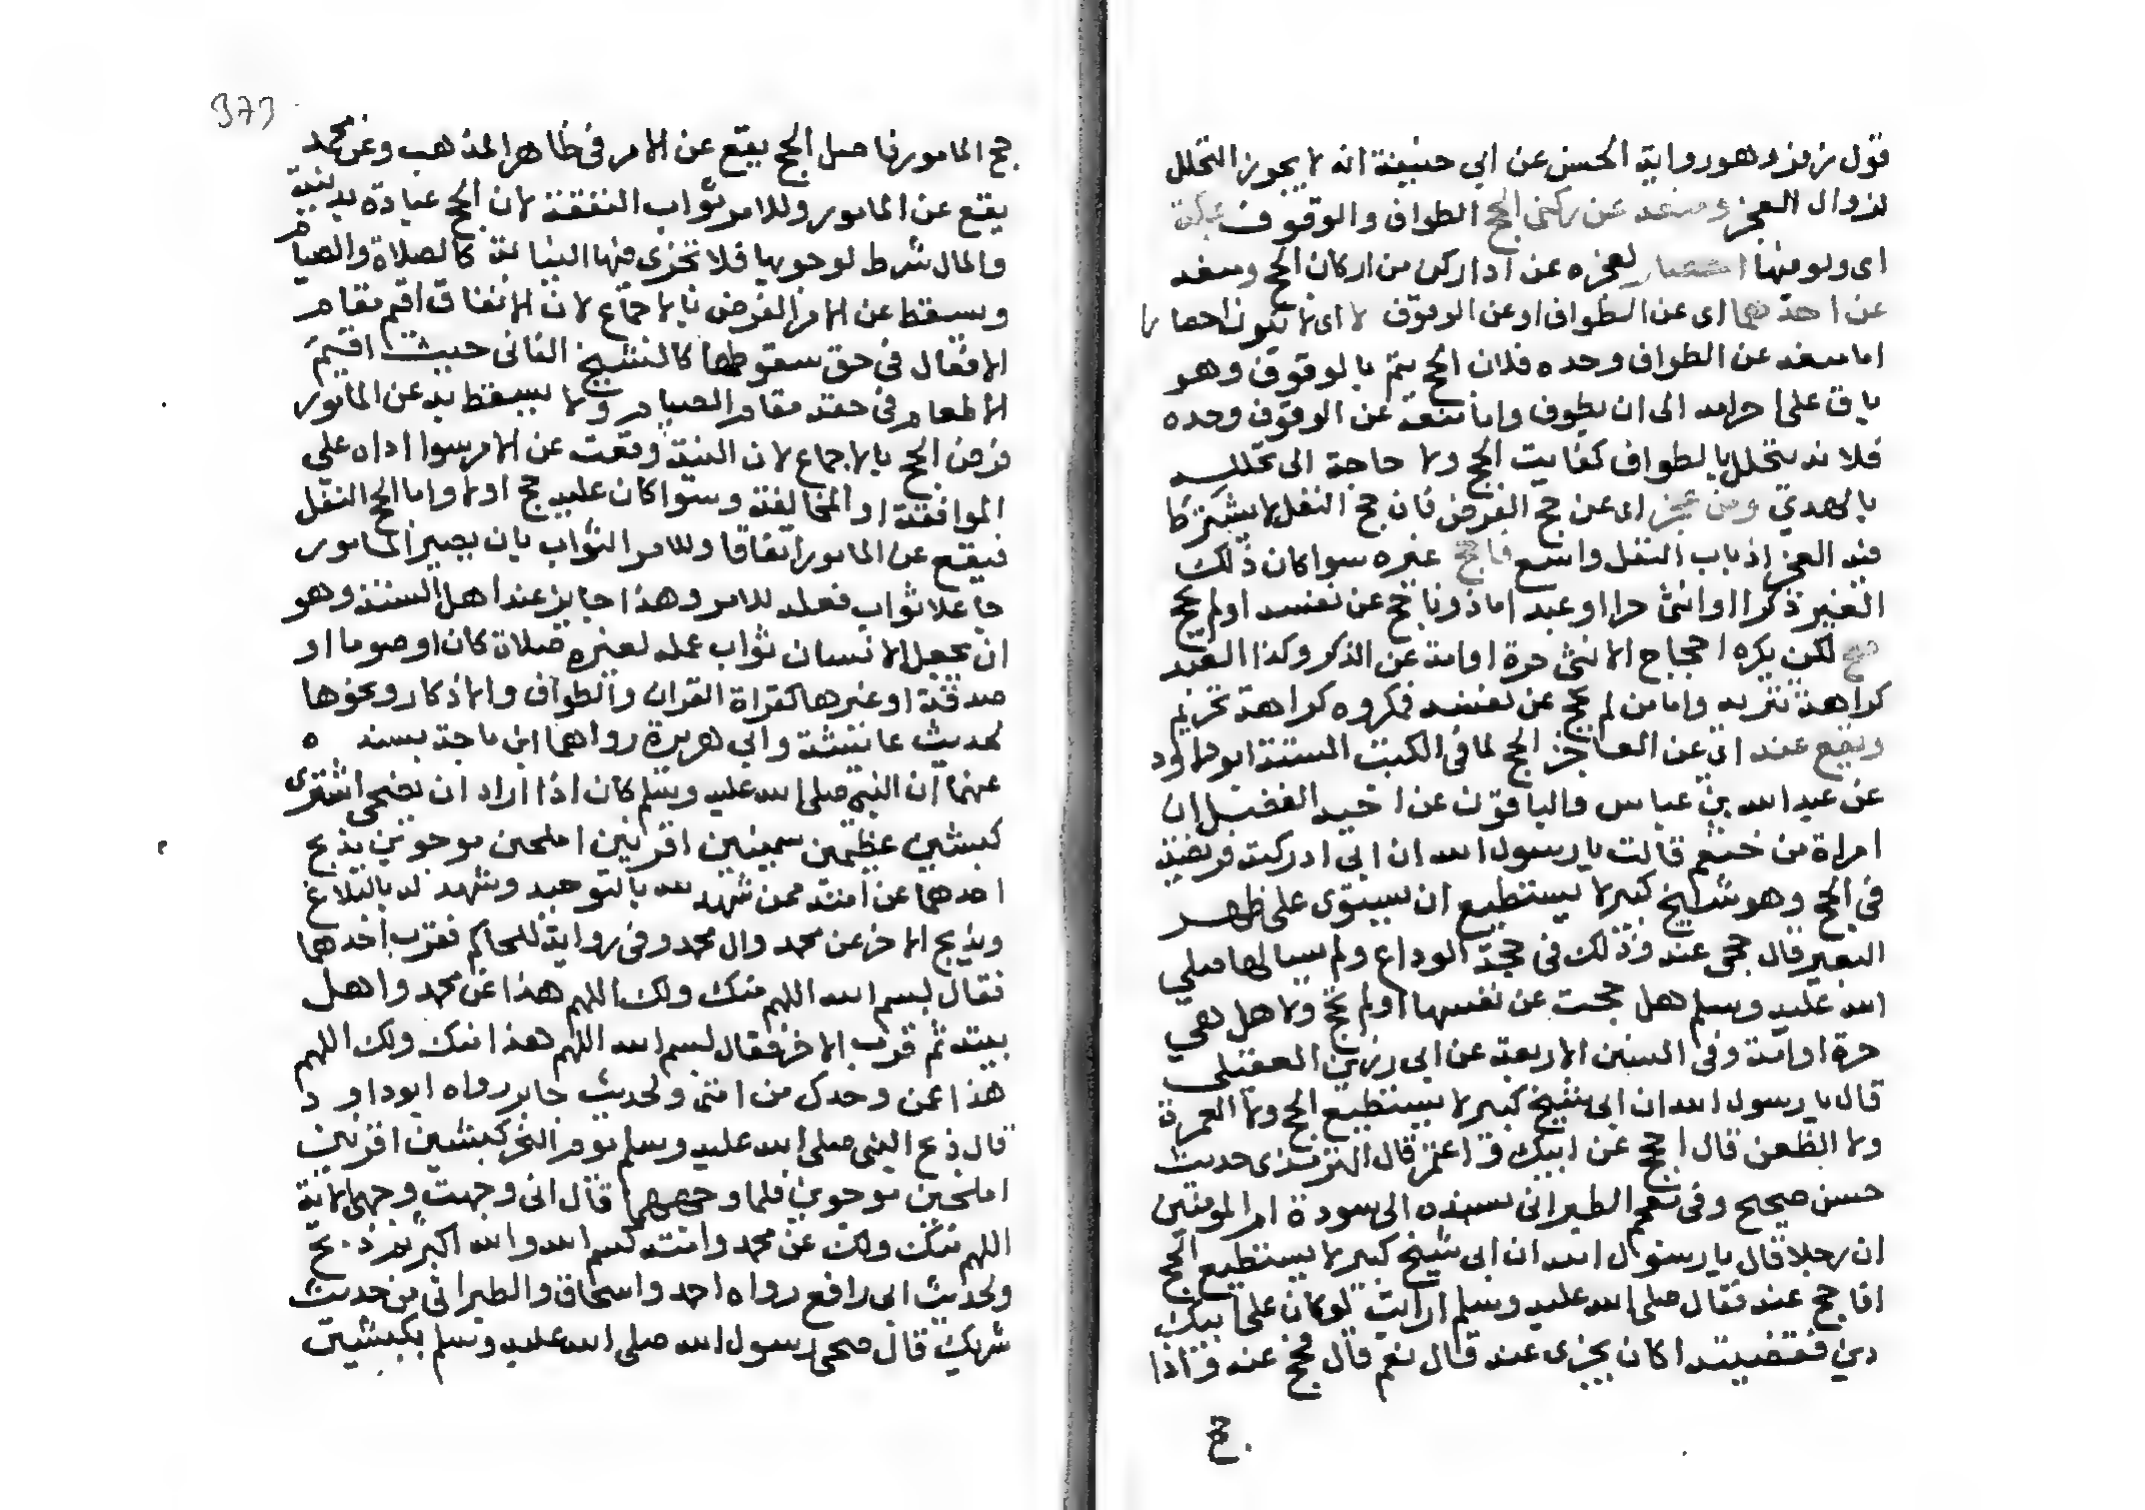 قول زفر وهو رواية الحسن عن ابي حنيفة انه لا يجوز التحلل
لزوال العجز ومنعه عن ركني الحج الطواف والوقوف بمكة
اي ولو منها احصار لعجزه عن ادا ركن من اركان الحج ومنعه
عن احدهما اي عن الطواف او عن الوقوف لا اي لا يكون احصارا
اما منعه عن الطواف وحده فلان الحج يتم بالوقوف وهو
باق على احرامه الى ان يطوف واما منعه عن الوقوف وحده
فلانه يتحلل بالطواف كفايت الحج ولا حاجة الى تحلله
بالهدي ومن عجز اي عن حج الفرض فان حج النفل لا يشترط
فيه العجز اذ باب النفل واسع فاحج غيره سوا كان ذلك
الغير ذكرا او انثى حرا او عبدا ماذونا حج عن نفسه او لم يحج
صح لكن يكره احجاج الانثى حرة او امة عن الذكر وكذا العبد
كراهة تنزيه واما من لم يحج عن نفسه فمكروه كراهة تحريم
ويقع عنه اي عن العاجز الحج لما في الكتب الستة ابو داود
عن عبد الله بن عباس والباقون عن اخيه الفضل ان
امراة من خثعم قالت يا رسول الله ان ابي ادركته فريضة
في الحج وهو شيخ كبير لا يستطيع ان يستوي على ظهر
البعير قال حجي عنه وذلك في حجة الوداع ولم يسالها صلى
الله عليه وسلم هل حججت عن نفسها او لم تحج ولا هل هي
حرة او امة وفي السنن الاربعة عن ابي رزين العقيلي
قال يا رسول الله ان ابي شيخ كبير لا يستطيع الحج ولا العمرة
ولا الظعن قال احجج عن ابيك واعتمر قال الترمذي حديث
حسن صحيح وفي معجم الطبراني بسنده الى سودة ام المومنين
ان رجلا قال يا رسول الله ان ابي شيخ كبير لا يستطيع الحج
افاحج عنه فقال صلى الله عليه وسلم ارايت لو كان على ابيك
دين فقضيته اكان يجزي عنه قال نعم قال فحج عنه واذا
حج
373
حج المامور فاصل الحج يقع عن الامر في ظاهر المذهب وعن محمد
يقع عن المامور وللامر ثواب النفقة لان الحج عبادة بدنية
والمال شرط لوجوبها فلا تجزي فيها النيابة كالصلاة والصيام
ويسقط عن الامر الفرض بالاجماع لان الانفاق اقيم مقام
الافعال في حق سقوطها كالشيخ الفاني حيث اقيم
الاطعام في حقه مقام الصيام ولا يسقط به عن المامور
فرض الحج بالاجماع لان النية وقعت عن الامر سوا اداه على
الموافقة او المخالفة وسوا كان عليه حج اولا واما الحج النفل
فيقع عن المامور اتفاقا وللامر الثواب بان يصير المامور
جاعلا ثواب فعله للامر وهذا جايز عند اهل السنة وهو
ان يجعل الانسان ثواب عمله لغيره صلاة كان او صوما او
صدقة او غيرها كقراة القران والطواف والاذكار ونحوها
لحديث عائشة وابي هريرة رواهما ابن ماجة بسنده
عنهما ان النبي صلى الله عليه وسلم كان اذا اراد ان يضحي اشترى
كبشين عظيمين سمينين اقرنين املحين موجوين يذبح
احدهما عن امته ممن شهد لله بالتوحيد وشهد له بالبلاغ
ويذبح الاخر عن محمد وال محمد وفي رواية للحاكم فقرب احدهما
فقال بسم الله اللهم منك ولك اللهم هذا عن محمد واهل
بيته ثم قرب الاخر فقال بسم الله اللهم هذا منك ولك اللهم
هذا عمن وحدك من امتي ولحديث جابر رواه ابو داود
قال ذبح النبي صلى الله عليه وسلم يوم النحر كبشين اقرنين
املحين موجوين فلما وجههما قال اني وجهت وجهي الاية
اللهم منك ولك عن محمد وامته بسم الله والله اكبر ثم ذبح
ولحديث ابي رافع رواه احمد واسحاق والطبراني من حديث
شريك قال ضحى رسول الله صلى الله عليه وسلم بكبشين